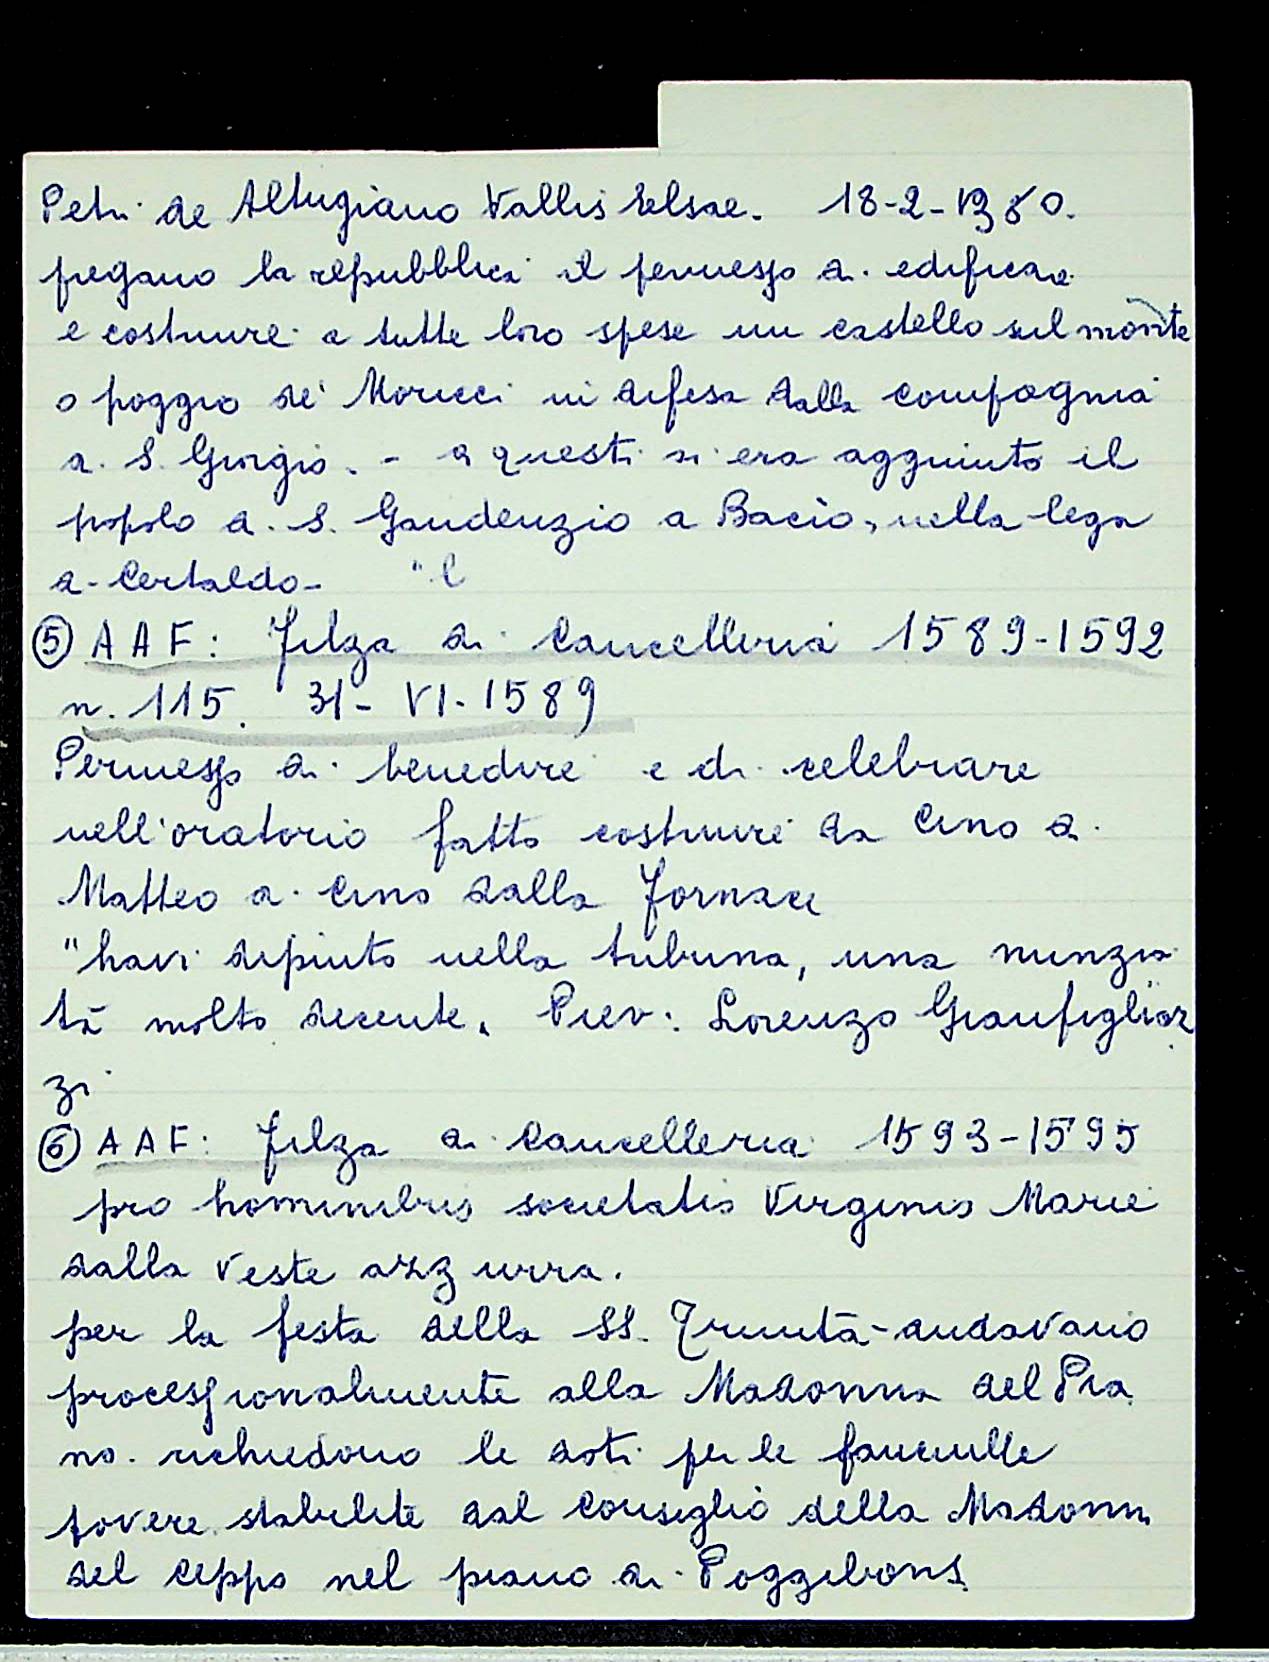 Petri de Altugiano Vallis Elsae. 18-2-1380.
pregano la repubblica il permesso di edificare
e costruire a tutte loro spese un castello sul monte
o poggio de' Moricci in difesa dalla compagnia
di S. Giorgio. - a questi si era aggiunto il
popolo di S. Gaudenzio a Bacìo, nella lega
di Certaldo-
⑤ AAF: Filza di Cancelleria 1589-1592
n. 115. 31- VI-1589
Permesso di benedire e di celebrare
nell'oratorio fatto costruire da Cino di
Matteo di Cino dalla Fornace
"havi dipinto nella tribuna, una nunzia
tà molto decente. Piev: Lorenzo Gianfigliaz
zi
⑥ AAF: Filza di Cancelleria 1593-1595
pro hominibus societatis Virginis Marie
dalla veste azzurra.
per la festa della SS. Trinità-andavano
processionalmente alla Madonna del Pia
no. richiedono le doti per le fanciulle
povere stabilite dal consiglio della Madonna
del Ceppo nel piano di Poggibons